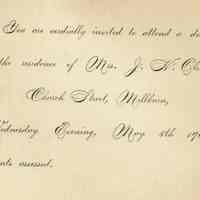 You are cordially invited to attend a
the residence of Mrs. J. N.
Church Street, Millburn,
Wednesday Evening, May 8th 19
assessed.